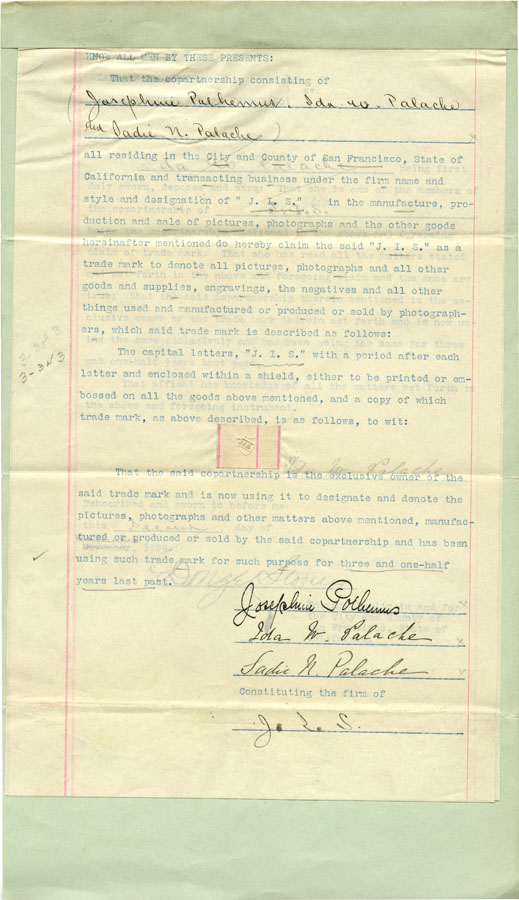 KNOW ALL MEN BY THESE PRESENTS:
That the copartnership consisting of
Josephine Polhemus, Ida W. Palache
and Sadie N. Palache
all residing in the City and County of San Francisco, State of
California and transacting business under the firm name and
style and designation of " J. I. S." in the manufacture, pro-
duction and sale of pictures, photographs and the other goods
hereinafter mentioned do hereby claim the said "J. I. S." as a
trade mark to denote all pictures, photographs and all other
goods and supplies, engravings, the negatives and all other
things used and manufactured or produced or sold by photograph-
ers, which said trade mark is described as follows:
3-343
3-343
The capital letters, "J. I. S." with a period after each
letter and enclosed within a shield, either to be printed or em-
bossed on all the goods above mentioned, and a copy of which
trade mark, as above described, is as follows, to wit:
That the said copartnership is the exclusive owner of the
said trade mark and is now using it to designate and denote the
pictures, photographs and other matters above mentioned, manufac-
tured or produced or sold by the said copartnership and has been
using such trade mark for such purpose for three and one-half
years last past.
Josephine Polhemus
Ida W. Palache
Sadie N. Palache
Constituting the firm of
J. I. S.